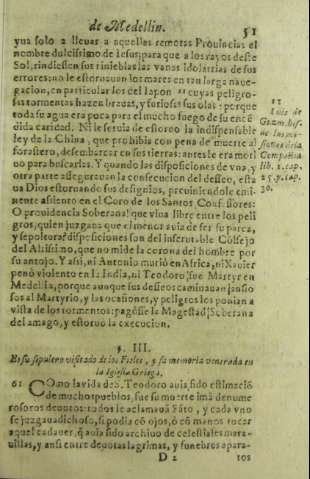 de Medellin. 51
yua solo a lleuar a aquellas remotas Prouincias el
nombre dulcissimo de Iesus; para que a los rayos deste
Sol, rindiessen sus tinieblas las vanas idolatrias de sus
errores: no le estoruauan los mares en tan larga naue-
gacion, en particular los del Iapon 11 cuyas peligro-
sas tormentas hazen brauas, y furiosas sus olas: porque
toda su agua era poca para el mucho fuego de su encẽ
dida caridad. Ni le seruia de estoruo la indispensable
ley de la China, que prohibia con pena de muerte al
forastero, desembarcar en sus tierras: antes le era moti
uo para buscarlas. Y quando las disposiciones de vna, y
otra parte assegurauan la consecucion del desseo, esta
ua Dios estoruando sus designios, preuiniendole emi-
nente assiento en el Coro de los Santos Confessores:
O prouidencia Soberana! que viua libre entre los peli
gros, quien juzgaua que el menor auia de ser su parca,
y sepoltora! disposiciones son del inscrutable Cõsejo
del Altissimo, que no mide la corona del hombre por
su antojo. Y assi, ni Antonio murió en Africa, ni Xauier
penò violento en la India, ni Teodoro fue Martyr en
Medellin, porque aunque sus desseos caminauan ansio
sos al Martyrio, y las ocasiones, y peligros los ponian a
vista de los tormentos: pagòse la Magestad Soberana
del amago, y estoruò la execucion.
11
Luis de
Guzm. hist.
de las mis-
siones de la
Compañia
lib. 1. cap.
25. p. cap.
30.
§. III.
Es su sepulcro visitado de los Fieles, y su memoria venerada en
la Iglesia Griega.
61 COmo la vida de S. Teodoro auia sido estimaciõ
de muchos pueblos, fue su muerte imã de nume
rosos deuotos: todos le aclamauã Sãto, y cada vno
se juzgaua dichoso, si podia cõ ojos, ò cõ manos tocar
aquel cadauer, q̃ auia sido archiuo de celestiales mara-
uillas, y ansi entre deuotas lagrimas, y funebres apara-
D 2 tos